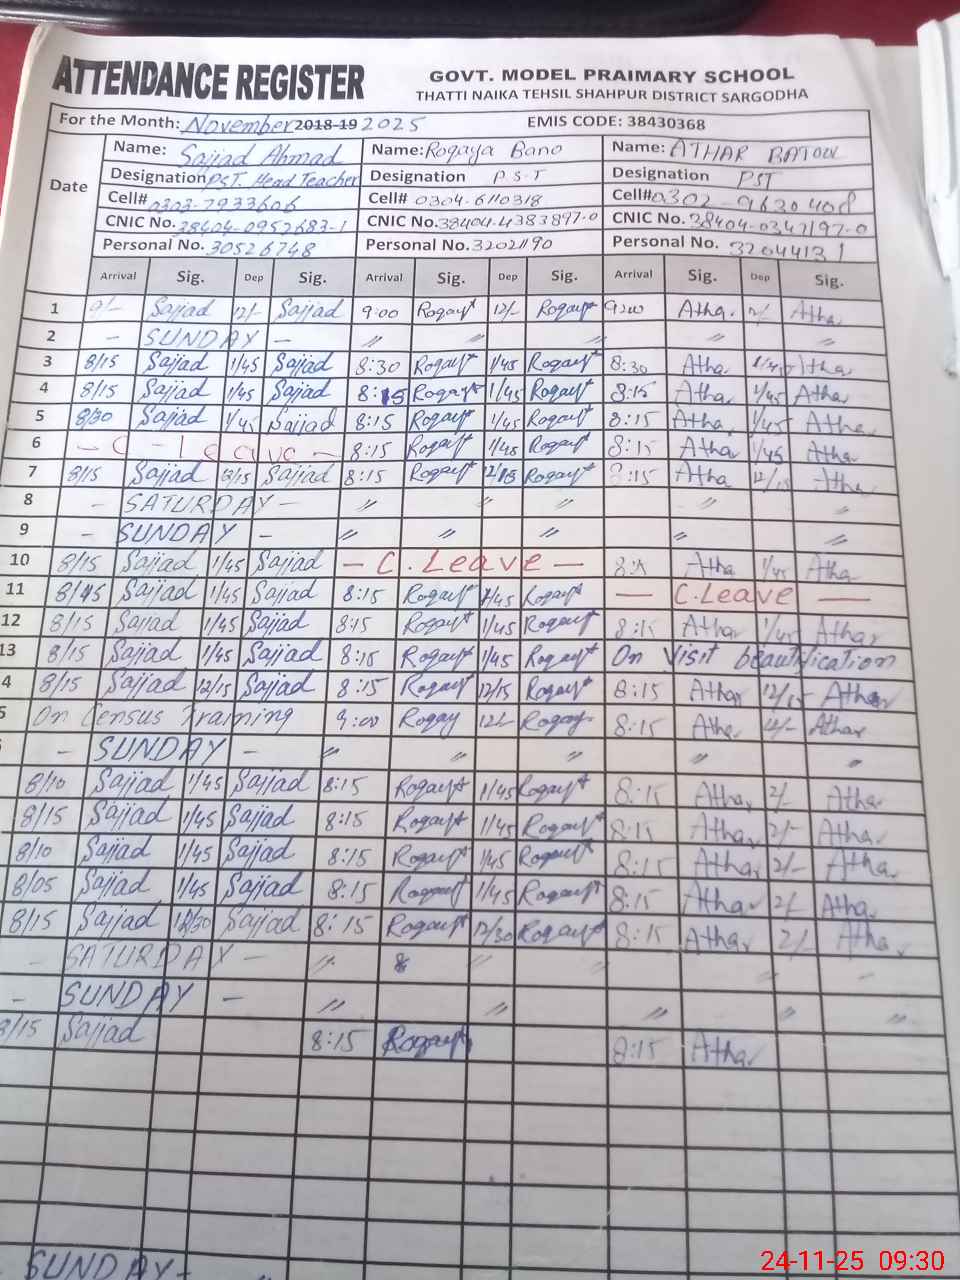 ATTENDANCE REGISTER
GOVT. MODEL PRAIMARY SCHOOL
THATTI NAIKA TEHSIL SHAHPUR DISTRICT SARGODHA
For the Month: November 2018-19 2025 EMIS CODE: 38430368
Date Name: Sajjad Ahmad Name: Rogaya Bano Name: ATHAR BATOOL
Designation PST. Head Teacher Designation P S T Designation PST
Cell# 0303-7933606 Cell# 0304-6110318 Cell# 0302-9630408
CNIC No. 38404-0952683-1 CNIC No. 38404-4383897-0 CNIC No. 38404-0347197-0
Personal No. 30526748 Personal No. 32021190 Personal No. 32044131
Arrival Sig. Dep Sig. Arrival Sig. Dep Sig. Arrival Sig. Dep Sig.
1 9/- Sajjad 12/- Sajjad 9:00 Rogayt 12/- Rogayt 9:00 Atha 2/- Atha
2 - SUNDAY - " " " " " "
3 8/15 Sajjad 1/45 Sajjad 8:30 Rogayt 1/45 Rogayt 8:30 Atha 1/45 Atha
4 8/15 Sajjad 1/45 Sajjad 8:15 Rogayt 1/45 Rogayt 8:15 Atha 1/45 Atha
5 8/30 Sajjad 1/45 Sajjad 8:15 Rogayt 1/45 Rogayt 8:15 Atha 1/45 Atha
6 - C - Leave - 8:15 Rogayt 1/45 Rogayt 8:15 Atha 1/45 Atha
7 8/15 Sajjad 12/15 Sajjad 8:15 Rogayt 12/15 Rogayt 8:15 Atha 12/15 Atha
8 - SATURDAY - " " " " " "
9 - SUNDAY - " " " " " "
10 8/15 Sajjad 1/45 Sajjad - C. Leave - Atha 1/45 Atha
11 8/15 Sajjad 1/45 Sajjad 8:15 Rogayt 1/45 Rogayt - C. Leave -
12 8/15 Sajjad 1/45 Sajjad 8:15 Rogayt 1/45 Rogayt 8:15 Athar 1/45 Athar
13 8/15 Sajjad 1/45 Sajjad 8:15 Rogayt 1/45 Rogayt On Visit beautification
4 8/15 Sajjad 12/15 Sajjad 8:15 Rogayt 12/15 Rogayt 8:15 Athar 12/15 Athar
5 On Census Training 9:00 Rogay 12/- Rogay 8:15 Athar Athar
- SUNDAY - " " " " "
8/10 Sajjad 1/45 Sajjad 8:15 Rogayt 1/45 Rogayt 8:15 Athar 2/- Athar
8/15 Sajjad 1/45 Sajjad 8:15 Rogayt 1/45 Rogayt 8:15 Athar 2/- Athar
8/10 Sajjad 1/45 Sajjad 8:15 Rogayt 1/45 Rogayt 8:15 Athar 2/- Athar
8/05 Sajjad 1/45 Sajjad 8:15 Rogayt 1/45 Rogayt 8:15 Athar 2/- Athar
8/15 Sajjad 12/30 Sajjad 8:15 Rogayt 12/30 Rogayt 8:15 Athar 2/- Athar
- SATURDAY - " " "
- SUNDAY - " " " " " "
8/15 Sajjad 8:15 Rogayt 8:15 Athar
SUNDAY -
24-11-25 09:30